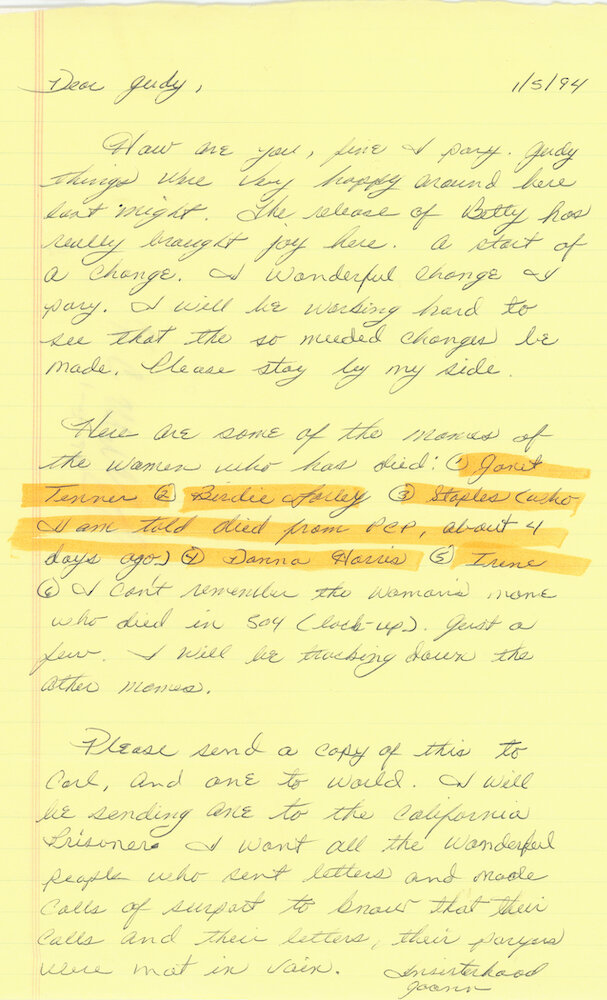 Dear Judy, 1/5/94
How are you, fine I pary. Judy
things were very happy around here
last might. The release of Betty has
really brought joy here. a start of
a change. A wonderful change I
pary. I will be working hard to
see that the so needed changes be
made. Please stay by my side.
Here are some of the names of
the women who has died: ① Janet
Tenner ② Birdie ③ Staples (who
I am told died from PCP, about 4
days ago) ④ Danna Harris ⑤ Irene
⑥ I can't remember the woman's name
who died in 504 (lock-up). Just a
few. I will be tracking down the
other names.
Please send a copy of this to
Carl, and one to world. I will
be sending one to the California
Prisoner. I want all the wonderful
people who sent letters and made
calls of surport to know that their
calls and their letters, their paryers
were not in vain. Insisterhood
Joann